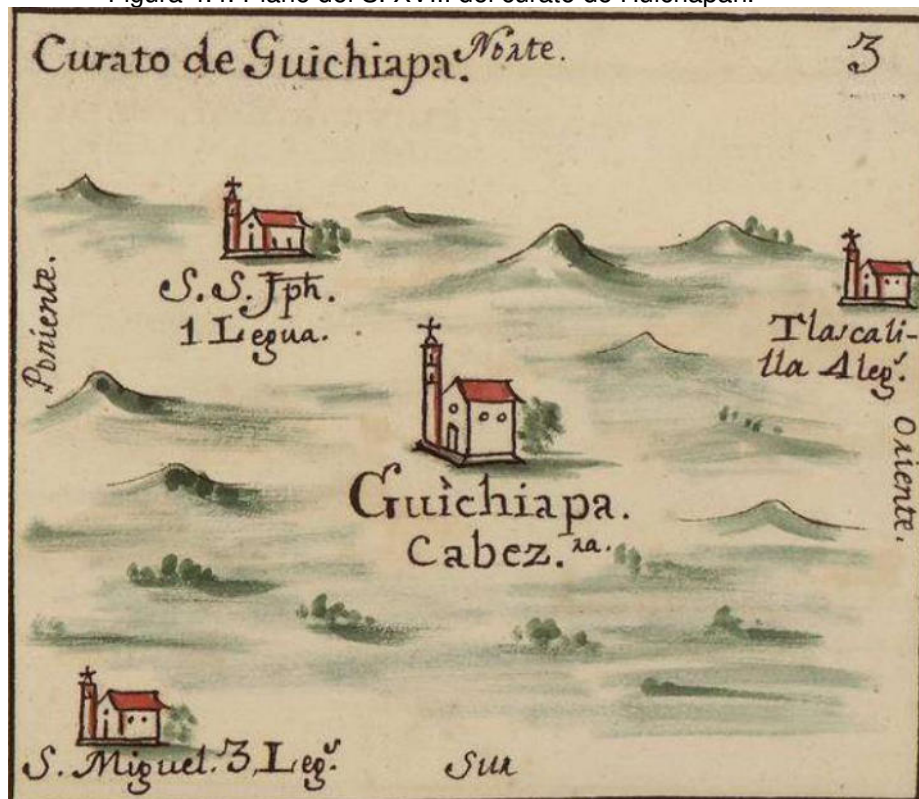 Curato de Guichiapa. Norte. 3
S. S. Jph.
1 Legua.
Poniente.
Tlascali-
lla 4 leg.s
Oriente.
Guichiapa.
Cabez.ra.
S. Miguel. 3, Leg.s
Sur